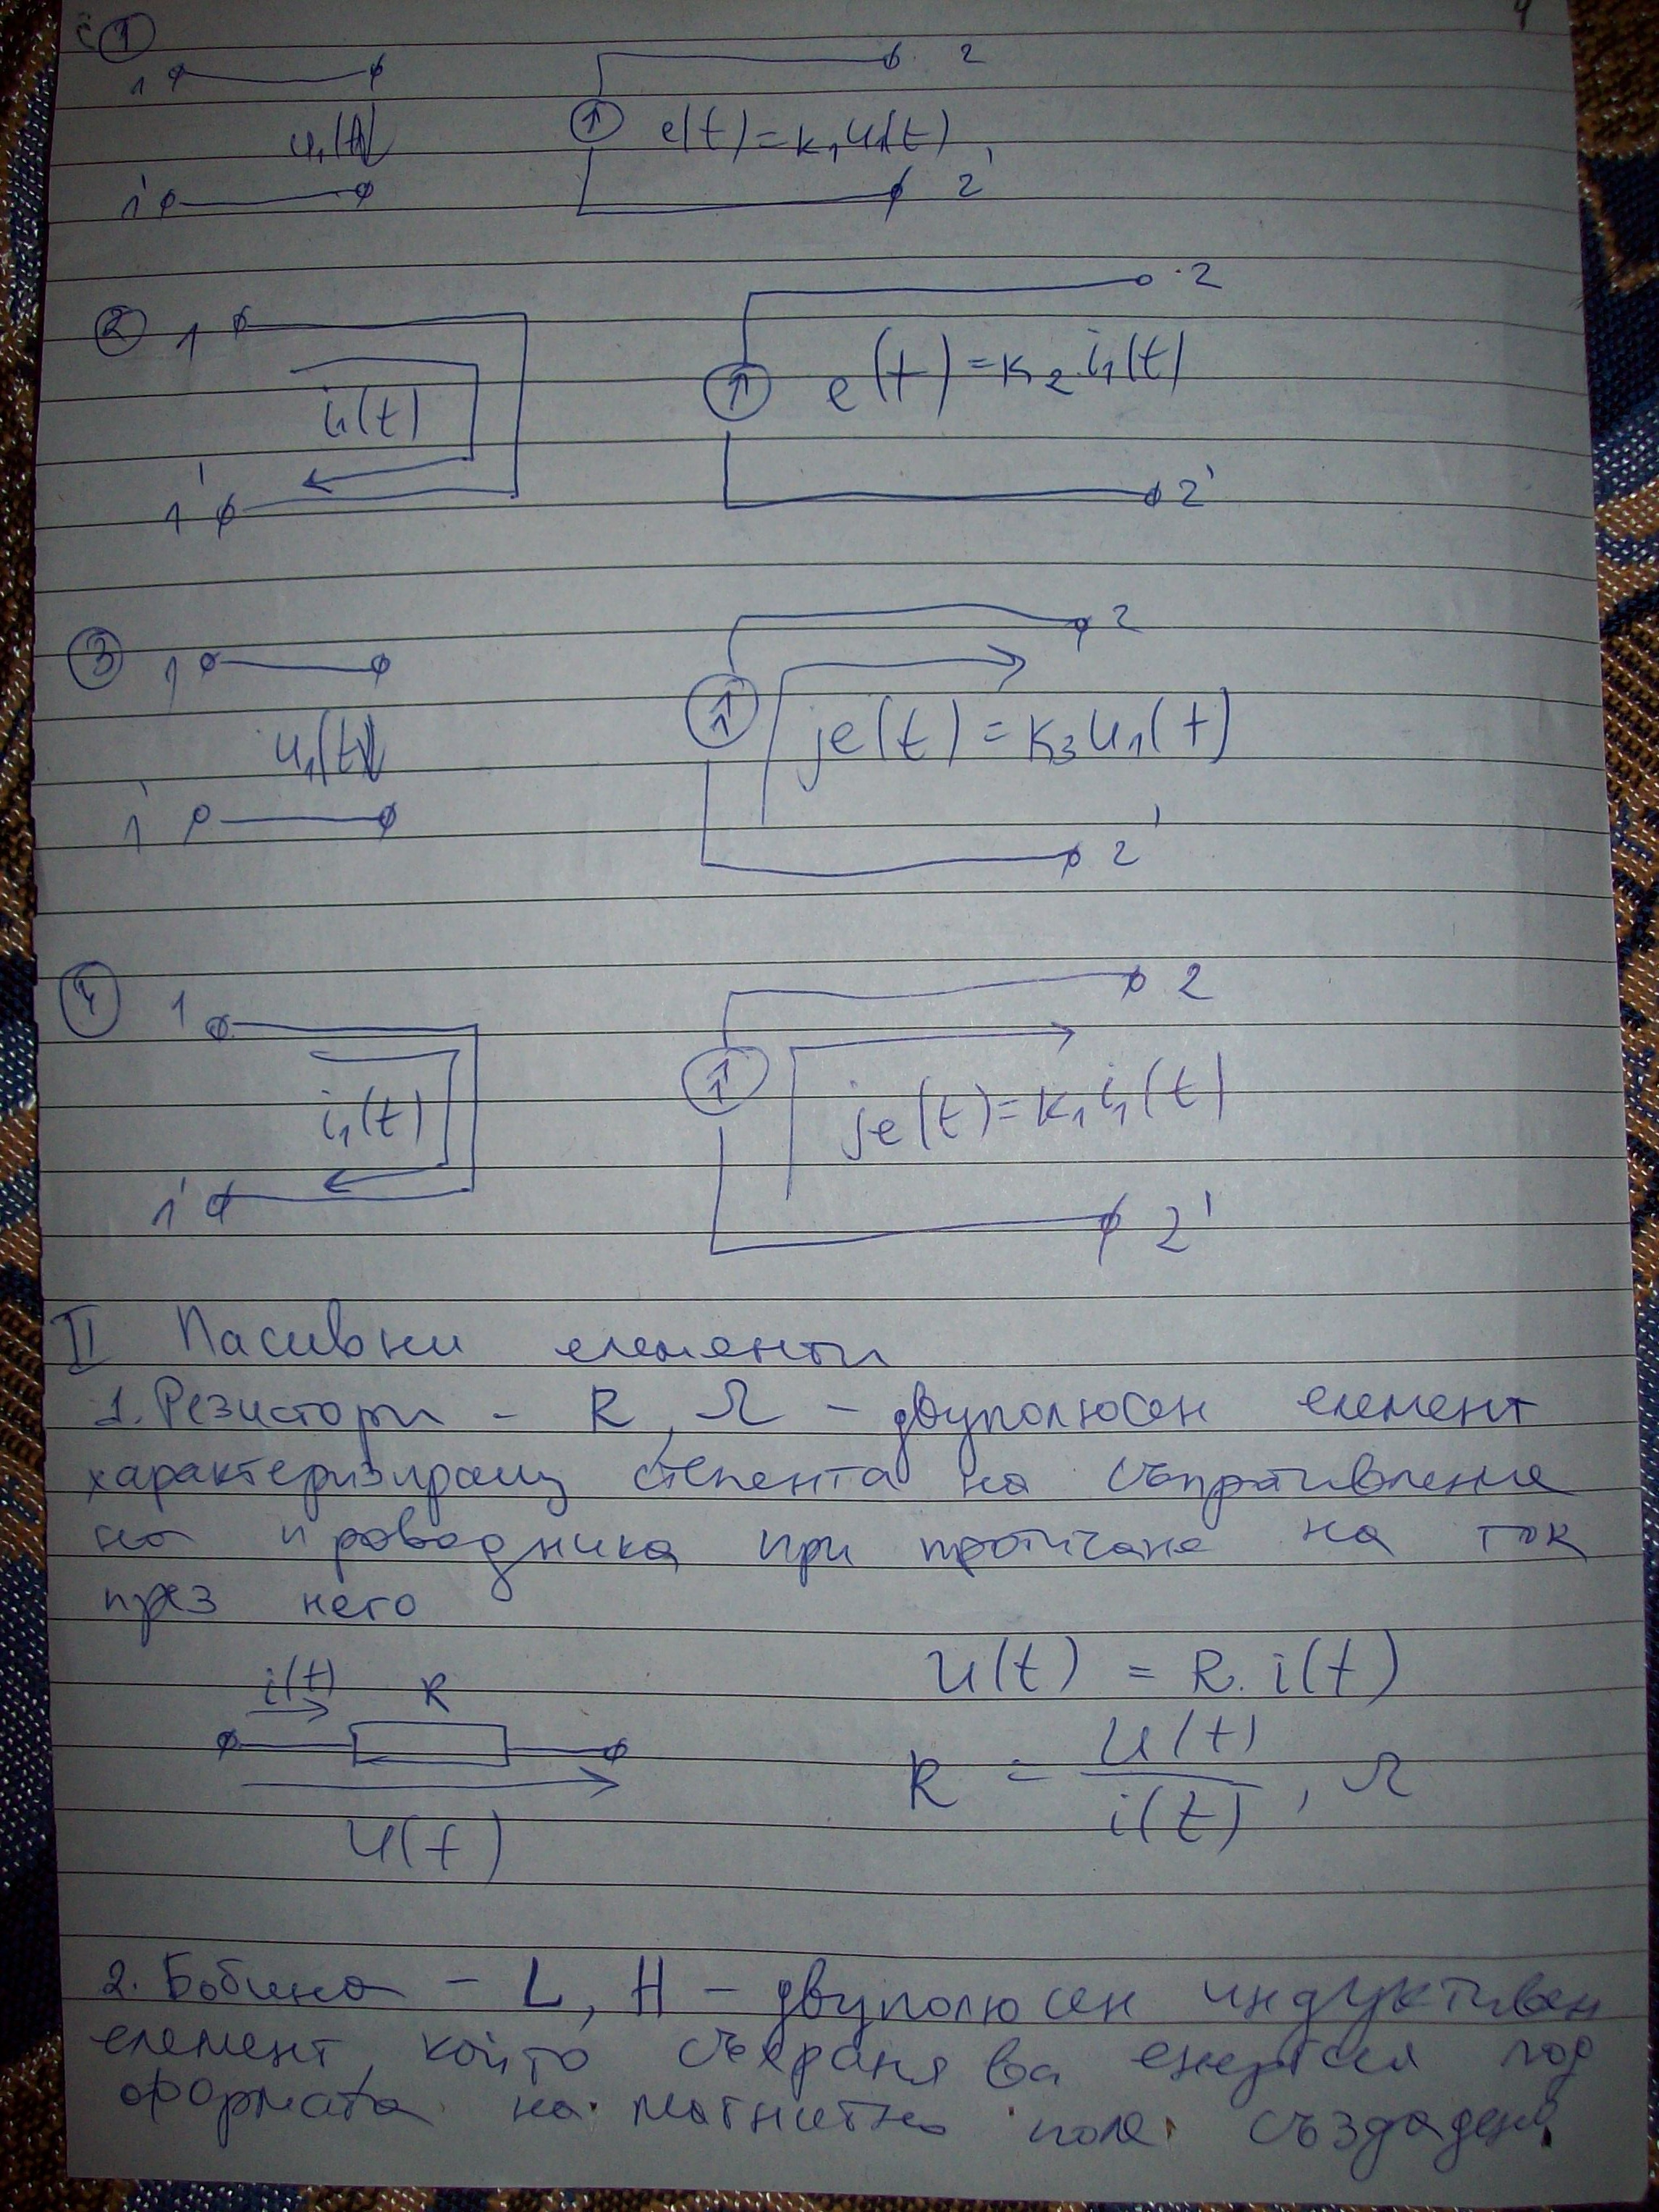 ①
1
2
u₁(t)
e(t)=k₁u₁(t)
1'
2'
②
1
2
i₁(t)
e(t)=k₂.i₁(t)
1'
2'
③
1
2
u₁(t)
je(t)=k₃u₁(t)
1'
2'
④
1
2
i₁(t)
je(t)=k₁i₁(t)
1'
2'
II Пасивни елементи
1. Резистори - R, Ω - двуполюсен елемент
характеризиращ степента на съпротивление
на проводника при протичане на ток
през него
i(t) R
u(t) = R. i(t)
R = u(t)/i(t), Ω
u(t)
2. Бобина - L, H - двуполюсен индуктивен
елемент, който съхранява енергия под
формата на магнитно поле създадено